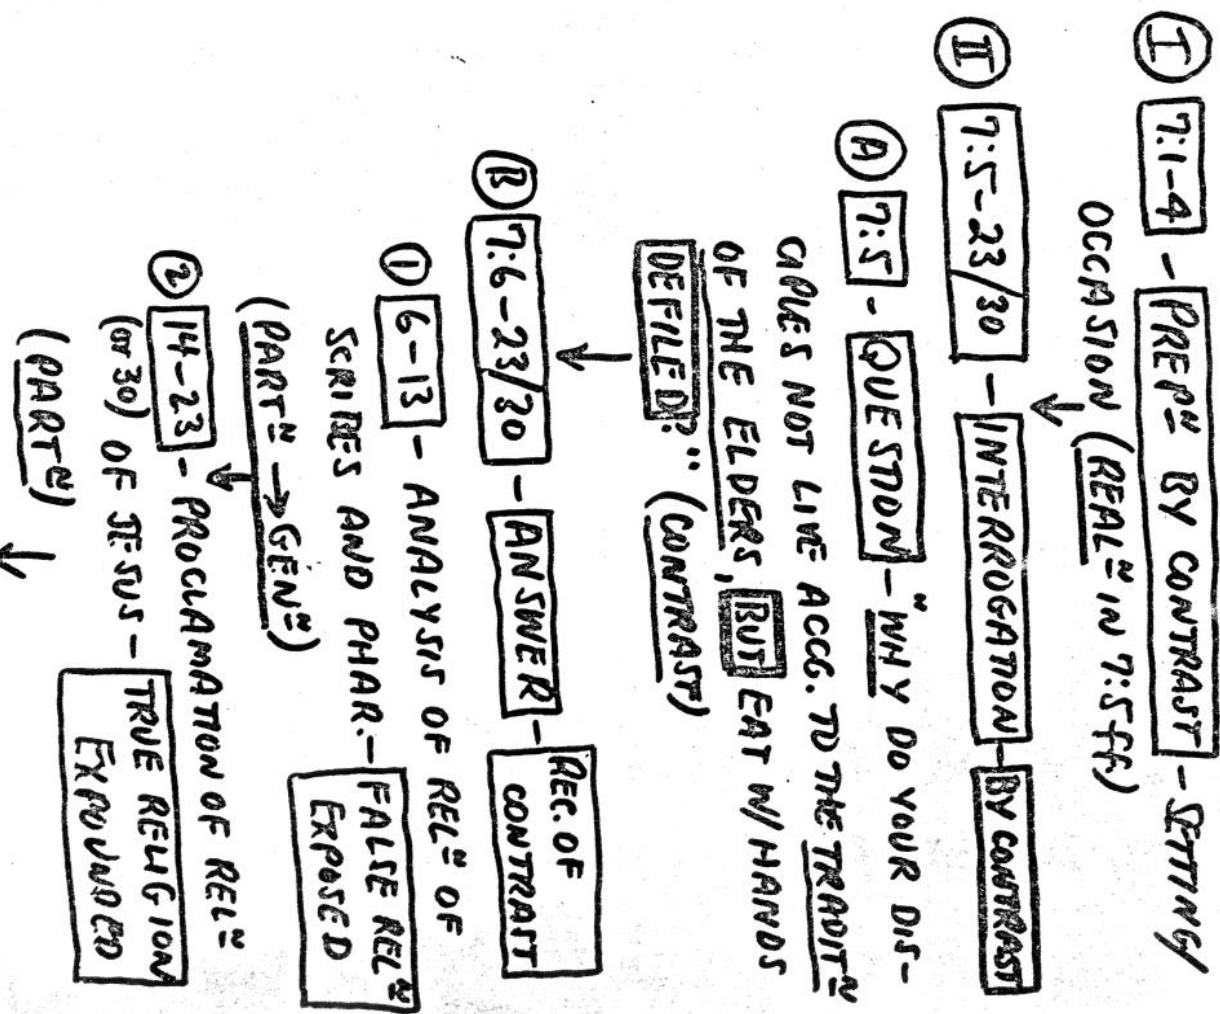 I 7:1-4 - PREPN BY CONTRAST - SETTING
OCCASION (REALN IN 7:5ff)
II 7:5-23/30 - INTERROGATION - BY CONTRAST
A 7:5 - QUESTION - "WHY DO YOUR DIS-
CIPLES NOT LIVE ACCG. TO THE TRADITN
OF THE ELDERS, BUT EAT W/HANDS
DEFILED?" (CONTRAST)
B 7:6-23/30 - ANSWER - REC. OF
CONTRAST
1 6-13 - ANALYSIS OF RELN OF
SCRIBES AND PHAR. - FALSE RELN
EXPOSED
(PARTN → GENN)
2 14-23 - PROCLAMATION OF RELN
(or 30) OF JESUS - TRUE RELIGION
EXPOUNDED
(PARTN)